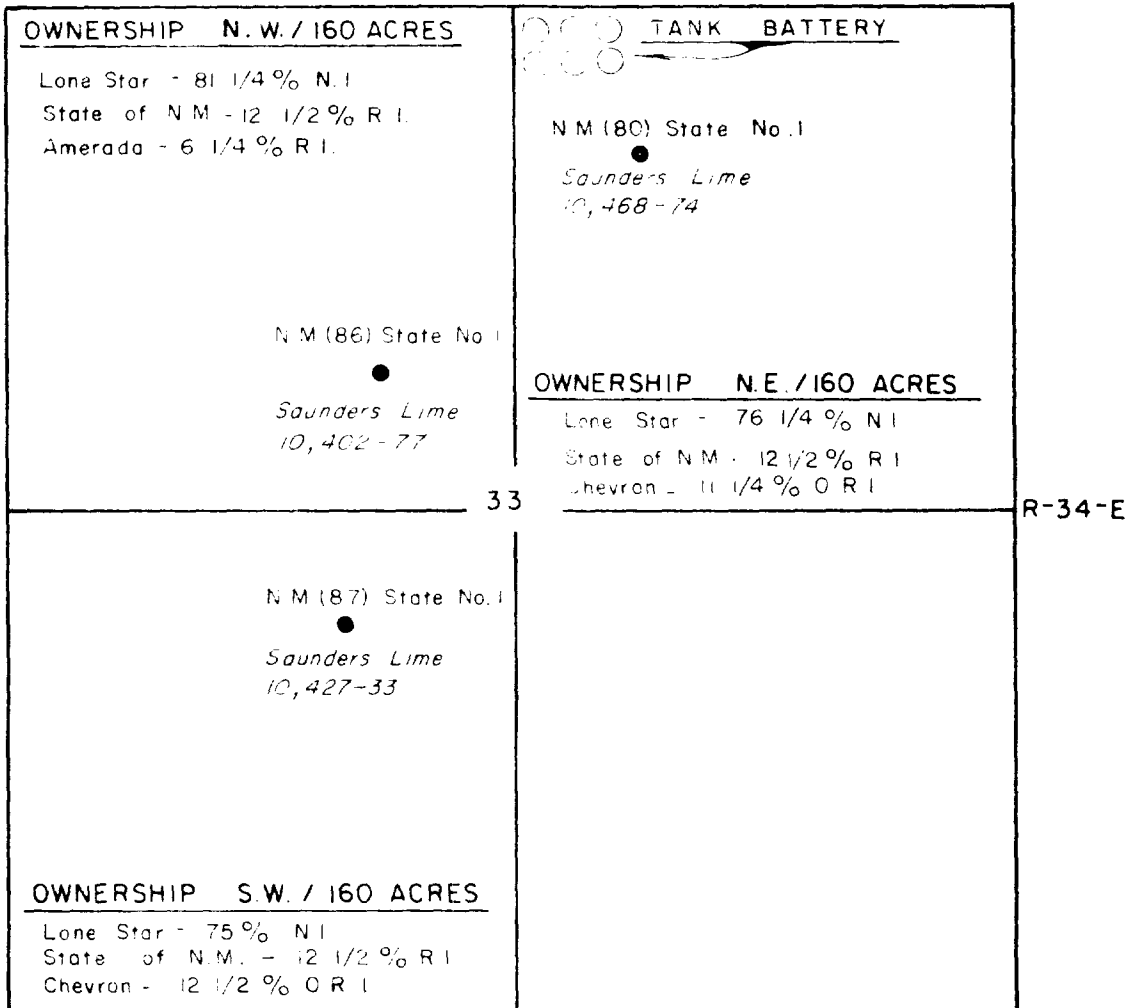 OWNERSHIP N.W. / 160 ACRES
Lone Star - 81 1/4 % N.I
State of N M - 12 1/2 % R I.
Amerada - 6 1/4 % R I.
TANK BATTERY
N M (80) State No. 1
Saunders Lime
10,468-74
N M (86) State No 1
Saunders Lime
10,402-77
OWNERSHIP N.E. / 160 ACRES
Lone Star - 76 1/4 % N I
State of N M - 12 1/2 % R I
Chevron - 11 1/4 % O R I
33
R-34-E
N M (87) State No. 1
Saunders Lime
10,427-33
OWNERSHIP S.W. / 160 ACRES
Lone Star - 75 % N I
State of N.M. - 12 1/2 % R I
Chevron - 12 1/2 % O R I